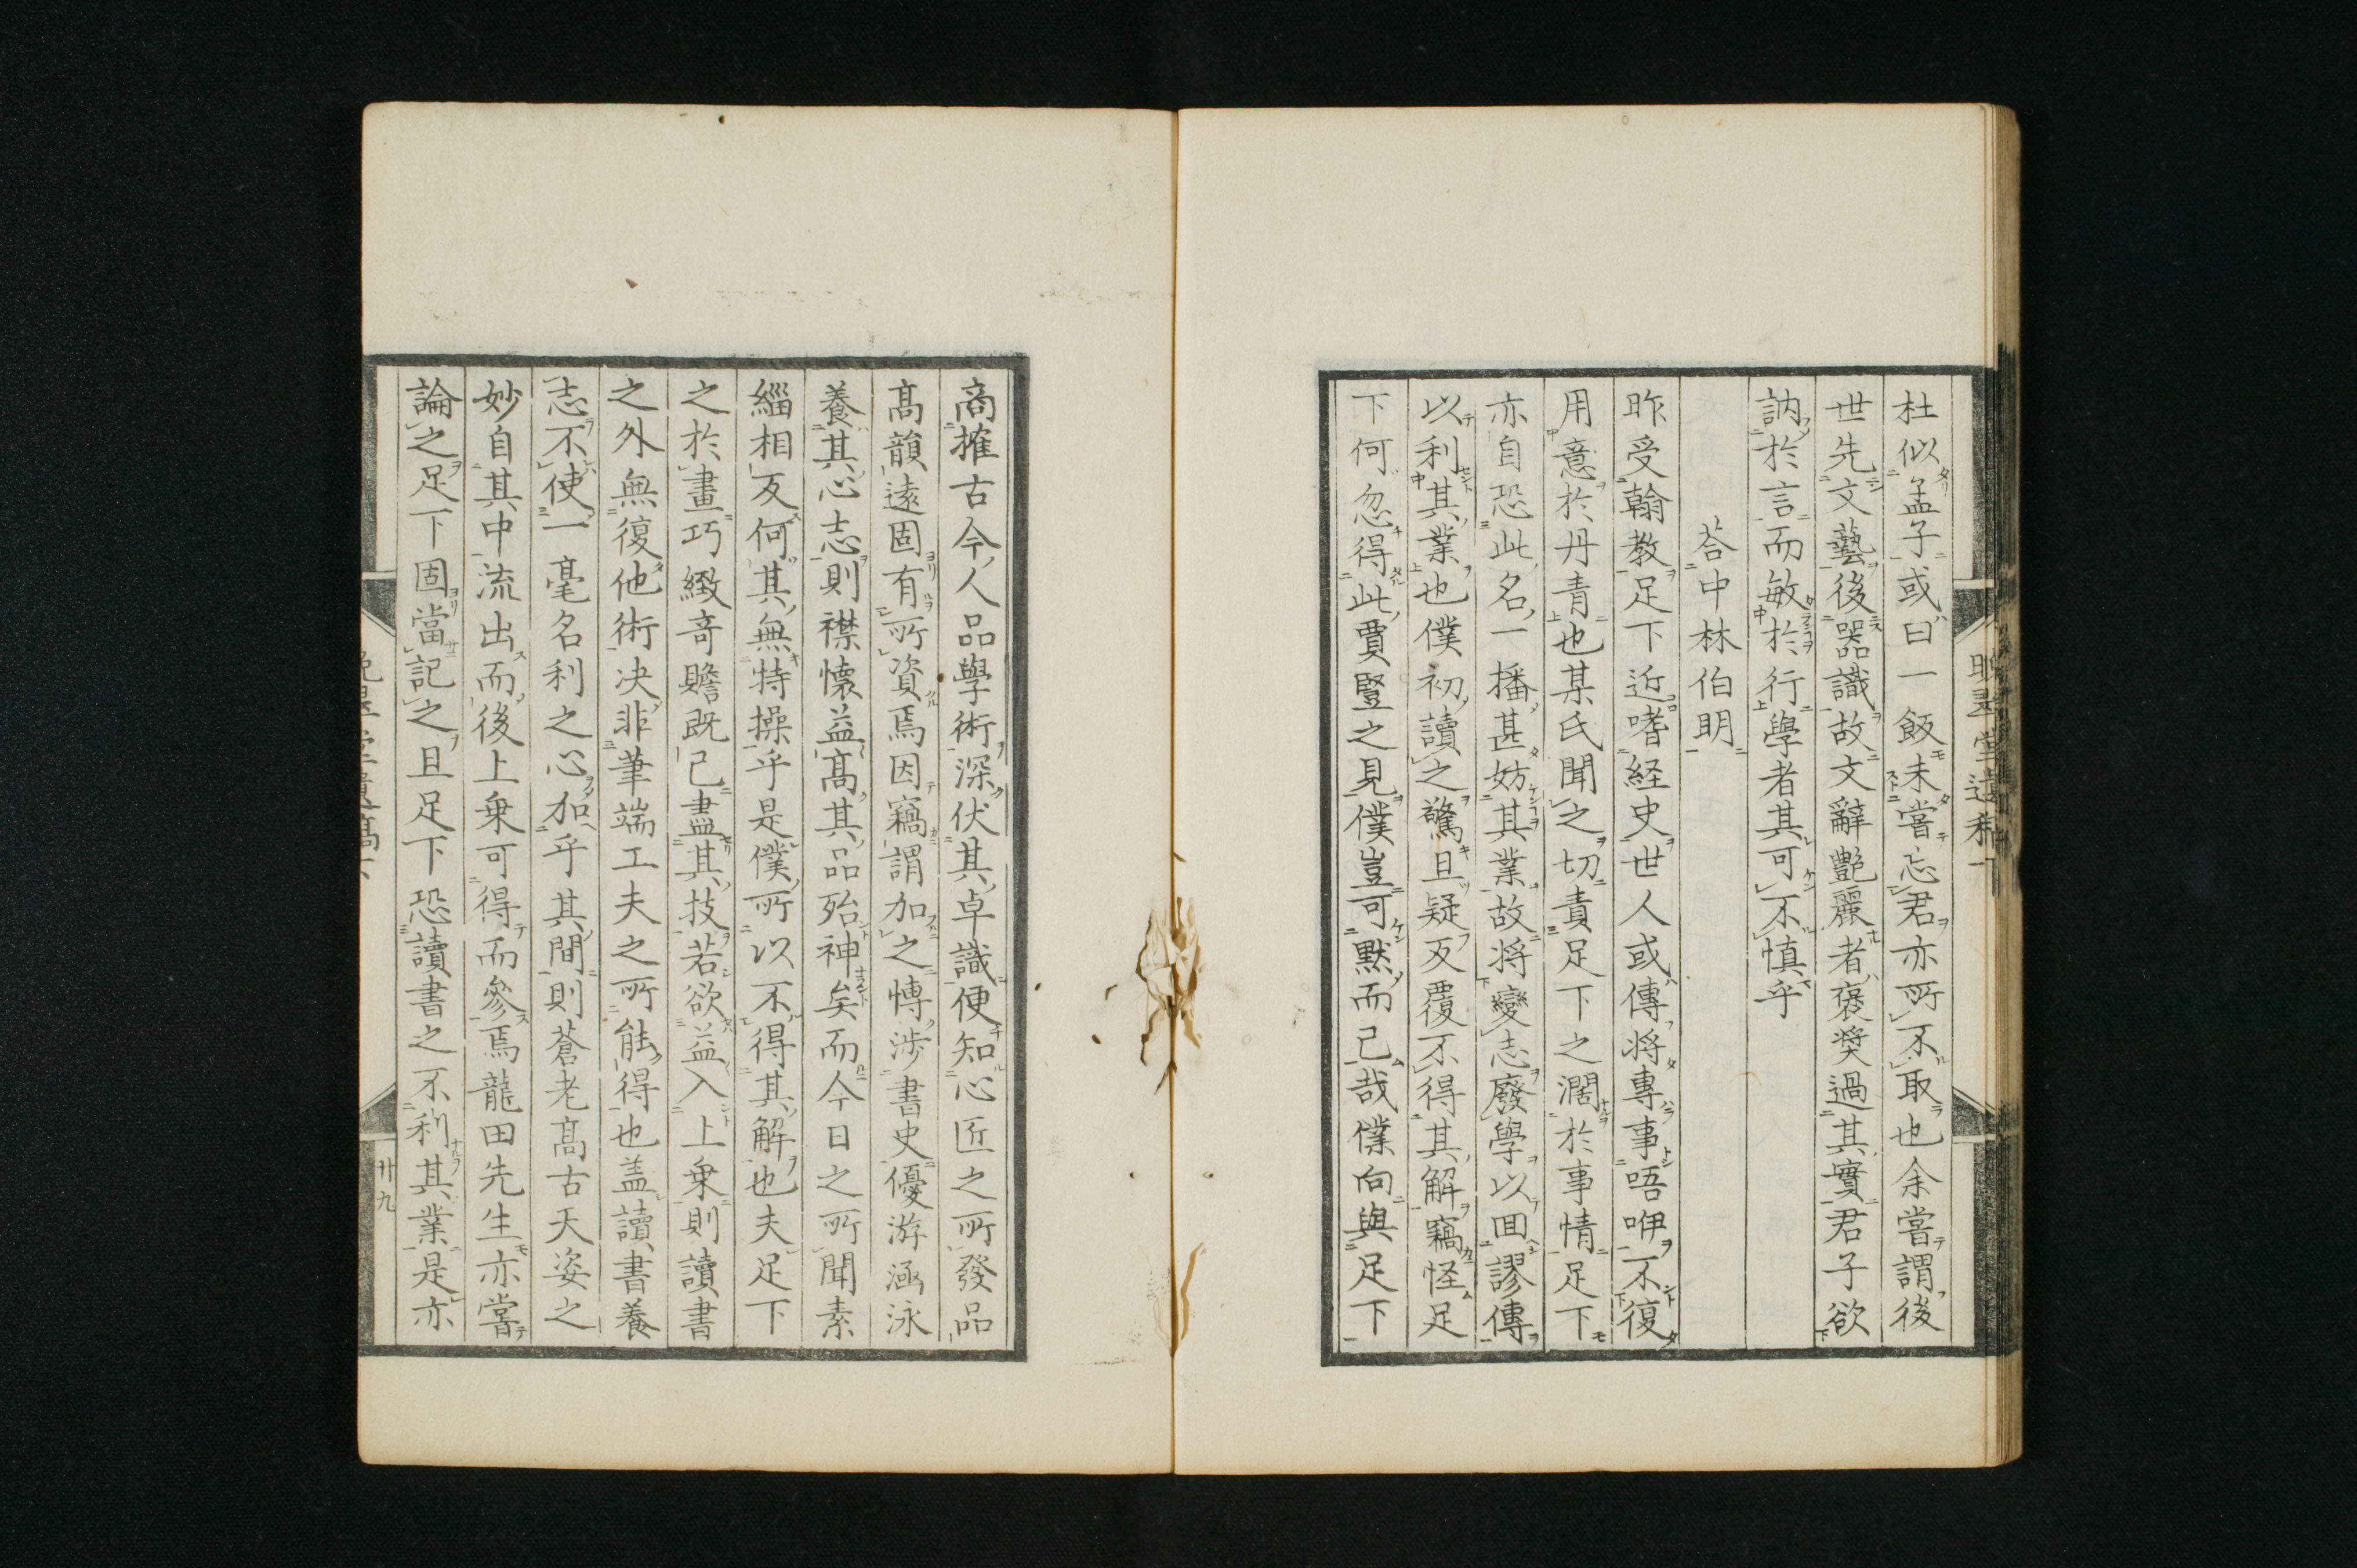 杜似孟子或曰一飯未嘗忘君亦所不取也余嘗謂後
世先文藝後器識故文辭艶麗者褒奬過其實君子欲
訥於言而敏於行學者其可不慎乎
荅中林伯明
昨受翰教足下近嗜経史世人或傳將專事唔咿不復
用意於丹青也某氏聞之切責足下之濶於事情足下
亦自恐此名一播甚妨其業故將變志廢學以回謬傳
以利其業也僕初讀之驚且疑反覆不得其解竊怪足
下何忽得此賈豎之見僕豈可黙而已哉僕向與足下
商搉古今人品學術深伏其卓識便知心匠之所發品
髙韻遠固有所資焉因竊謂加之慱渉書史優游涵泳
養其心志則襟懐益髙其品殆神矣而今日之所聞素
緇相反何其無特操乎是僕所以不得其解也夫足下
之於畫巧緻竒贍既已盡其技若欲益入上乗則讀書
之外無復他術决非筆端工夫之所能得也盖讀書養
志不使一毫名利之心加乎其間則蒼老髙古天姿之
妙自其中流出而後上乗可得而參焉龍田先生亦嘗
論之足下固當記之且足下恐讀書之不利其業是亦
廾九